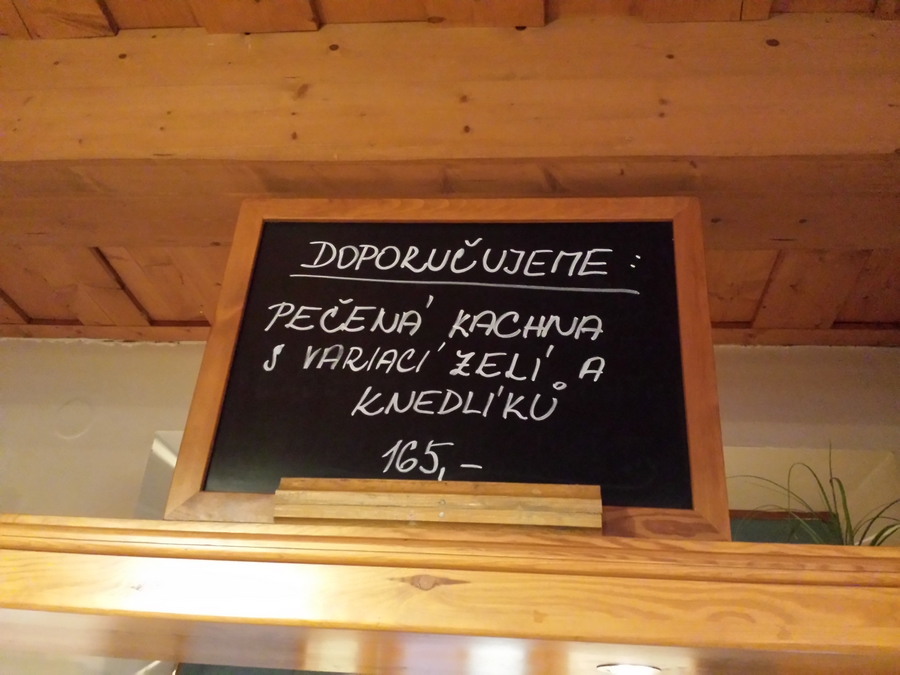 DOPORUČUJEME :
PEČENÁ KACHNA
S VARIACÍ ZELÍ A
KNEDLÍKŮ
165,-